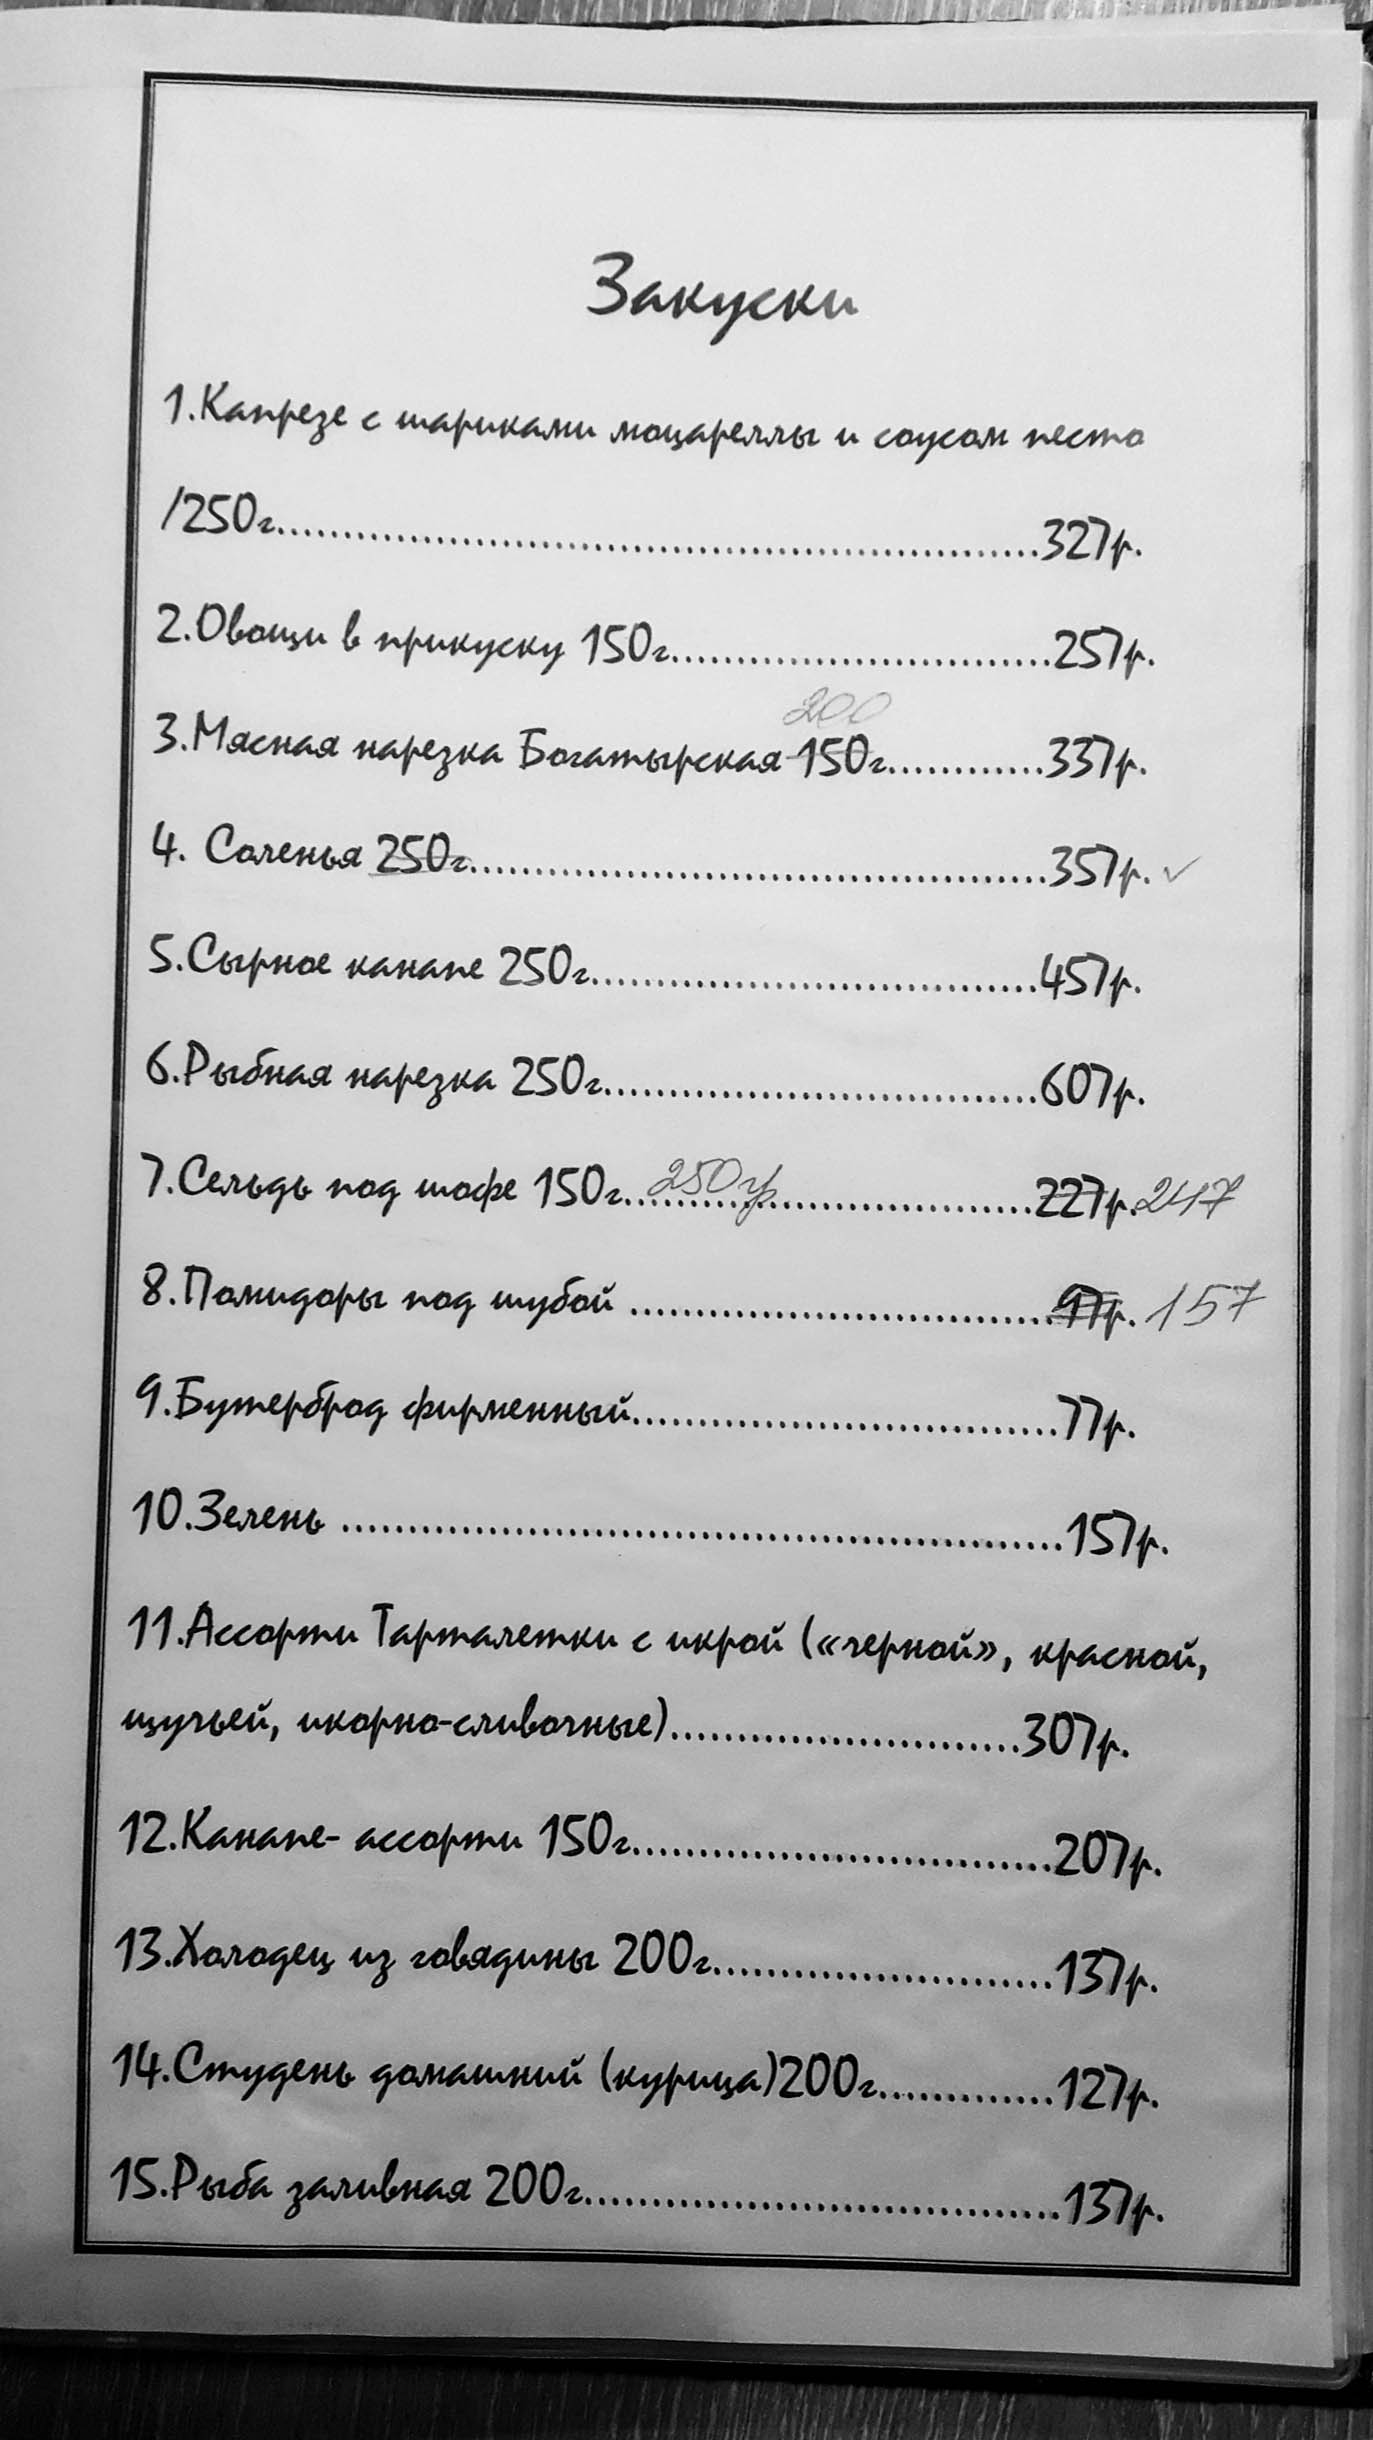 Закуски
1.Капрезе с шариками моцареллы и соусом песто
/250г..........................................................327р.
2.Овощи в прикуску 150г.............................257р.
200
3.Мясная нарезка Богатырская 150г............337р.
4. Соленья 250г............................................357р. ✓
5.Сырное канапе 250г..................................457р.
6.Рыбная нарезка 250г.................................607р.
7.Сельдь под шофе 150г...250гр....................227р. 247
8.Помидоры под шубой ................................97р. 157
9.Бутерброд фирменный................................77р.
10.Зелень .......................................................157р.
11.Ассорти Тарталетки с икрой («черной», красной,
щучьей, икорно-сливочные)...........................307р.
12.Канапе- ассорти 150г................................207р.
13.Холодец из говядины 200г..........................137р.
14.Студень домашний (курица)200г.............127р.
15.Рыба заливная 200г....................................137р.